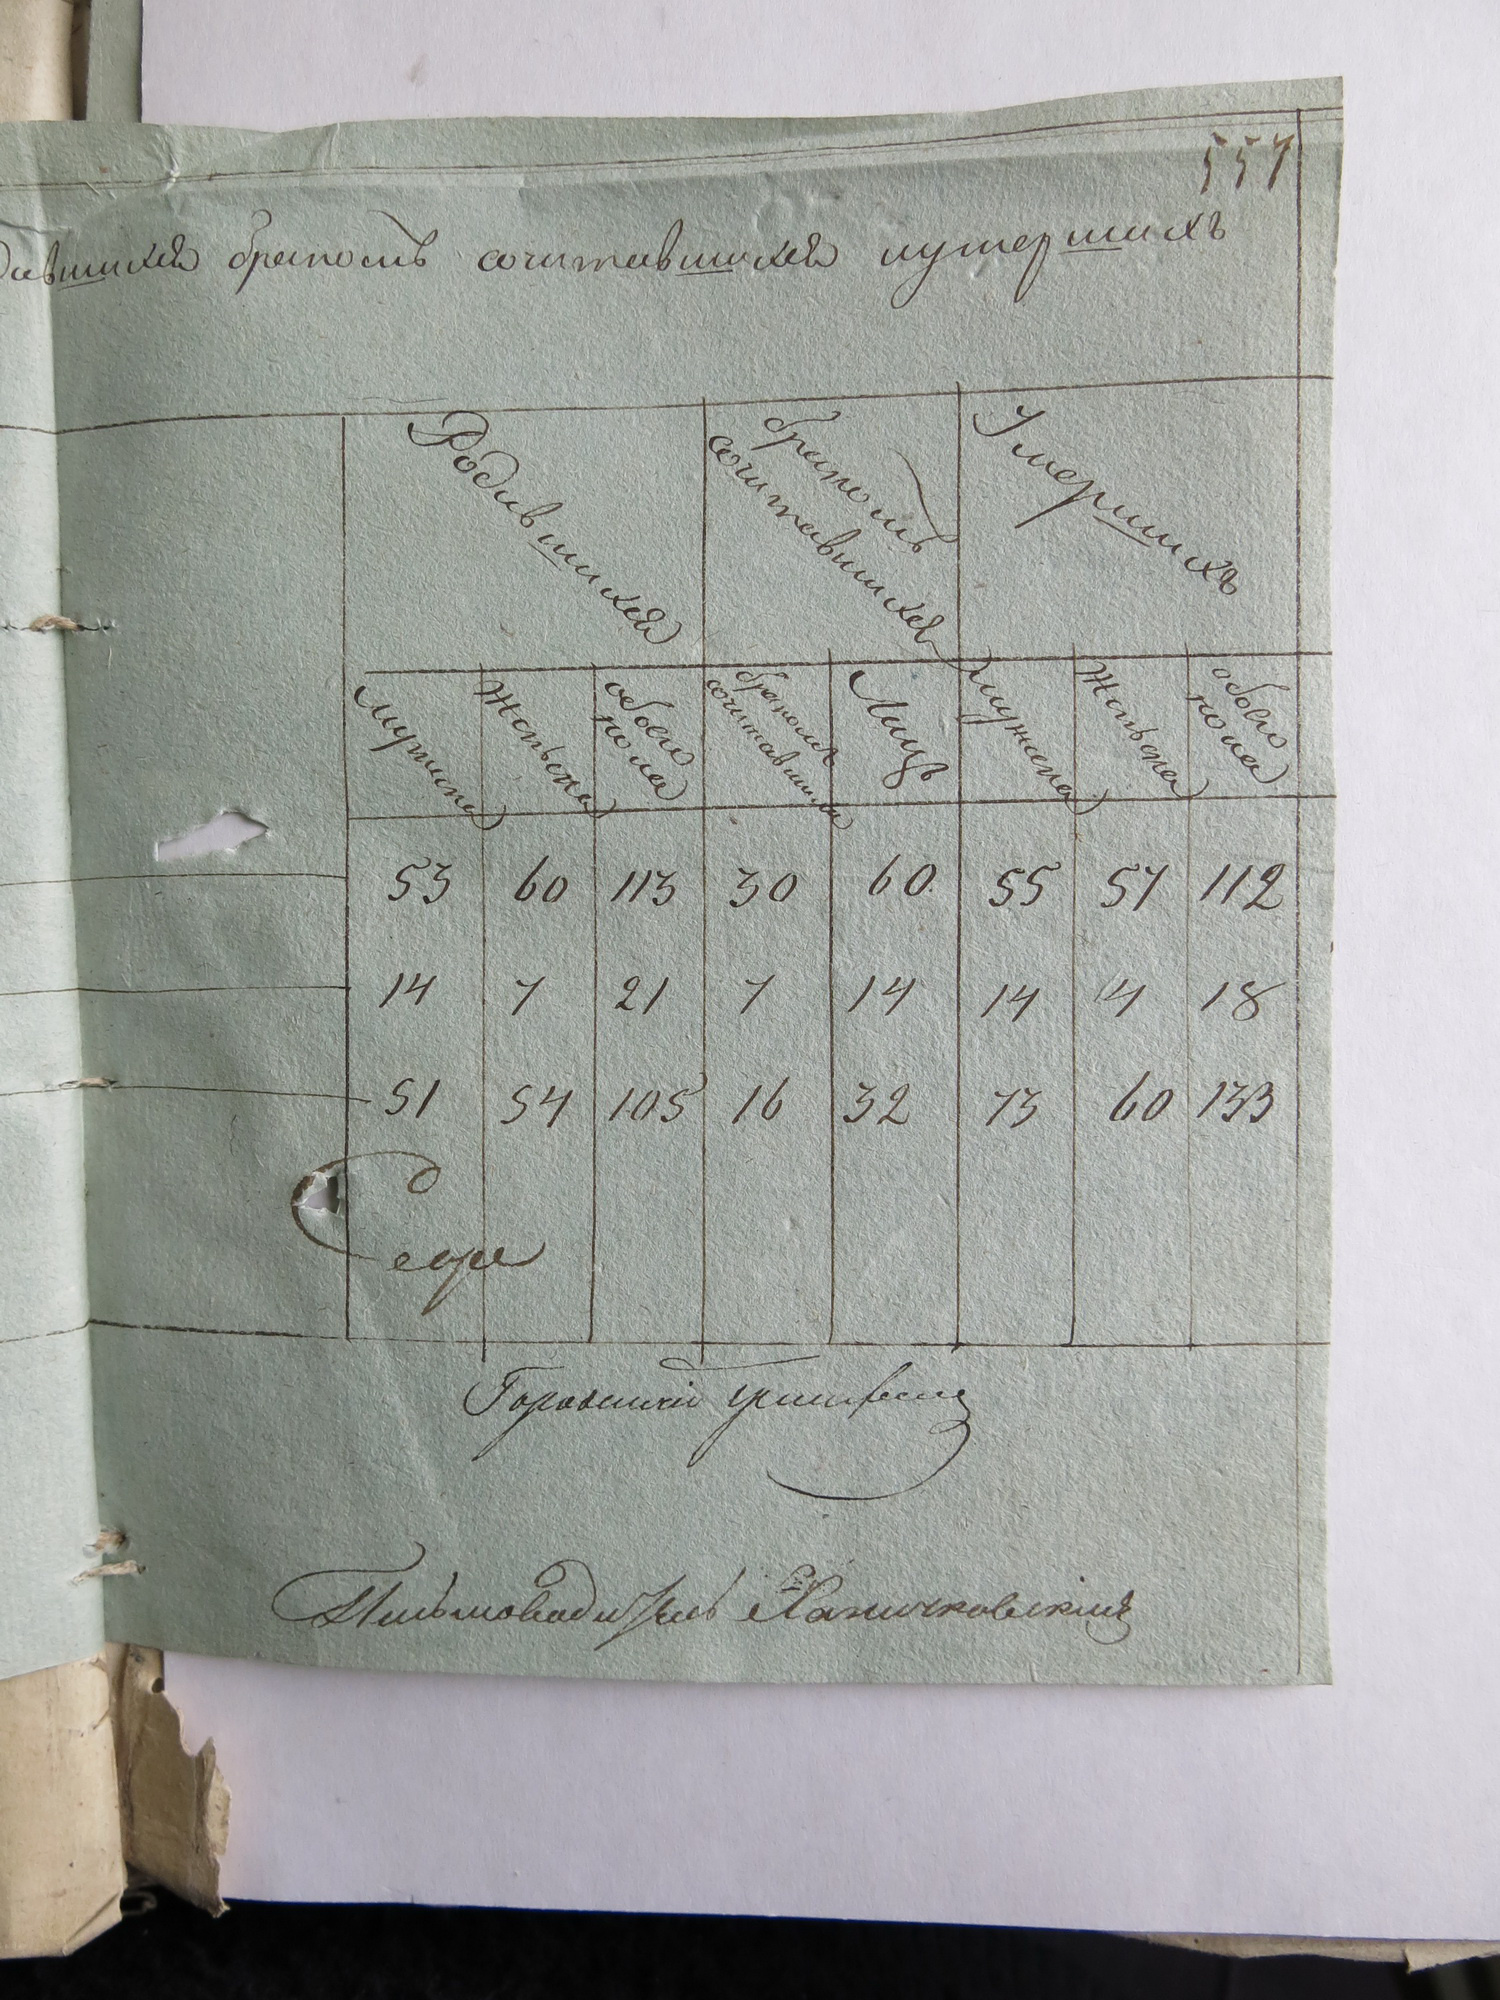 557
давшихся бракомъ сочитавшихся иумершихъ
Родившихся
бракомъ
сочитавшихся
Умершихъ
мужска
женьска
обоего
пола
бракомъ
сочитавшихся
Лицъ
мужска
женьска
обоего
пола
53 60 113 30 60 55 57 112
14 7 21 7 14 14 4 18
51 54 105 16 32 73 60 133
Городничий
Письмоводитель